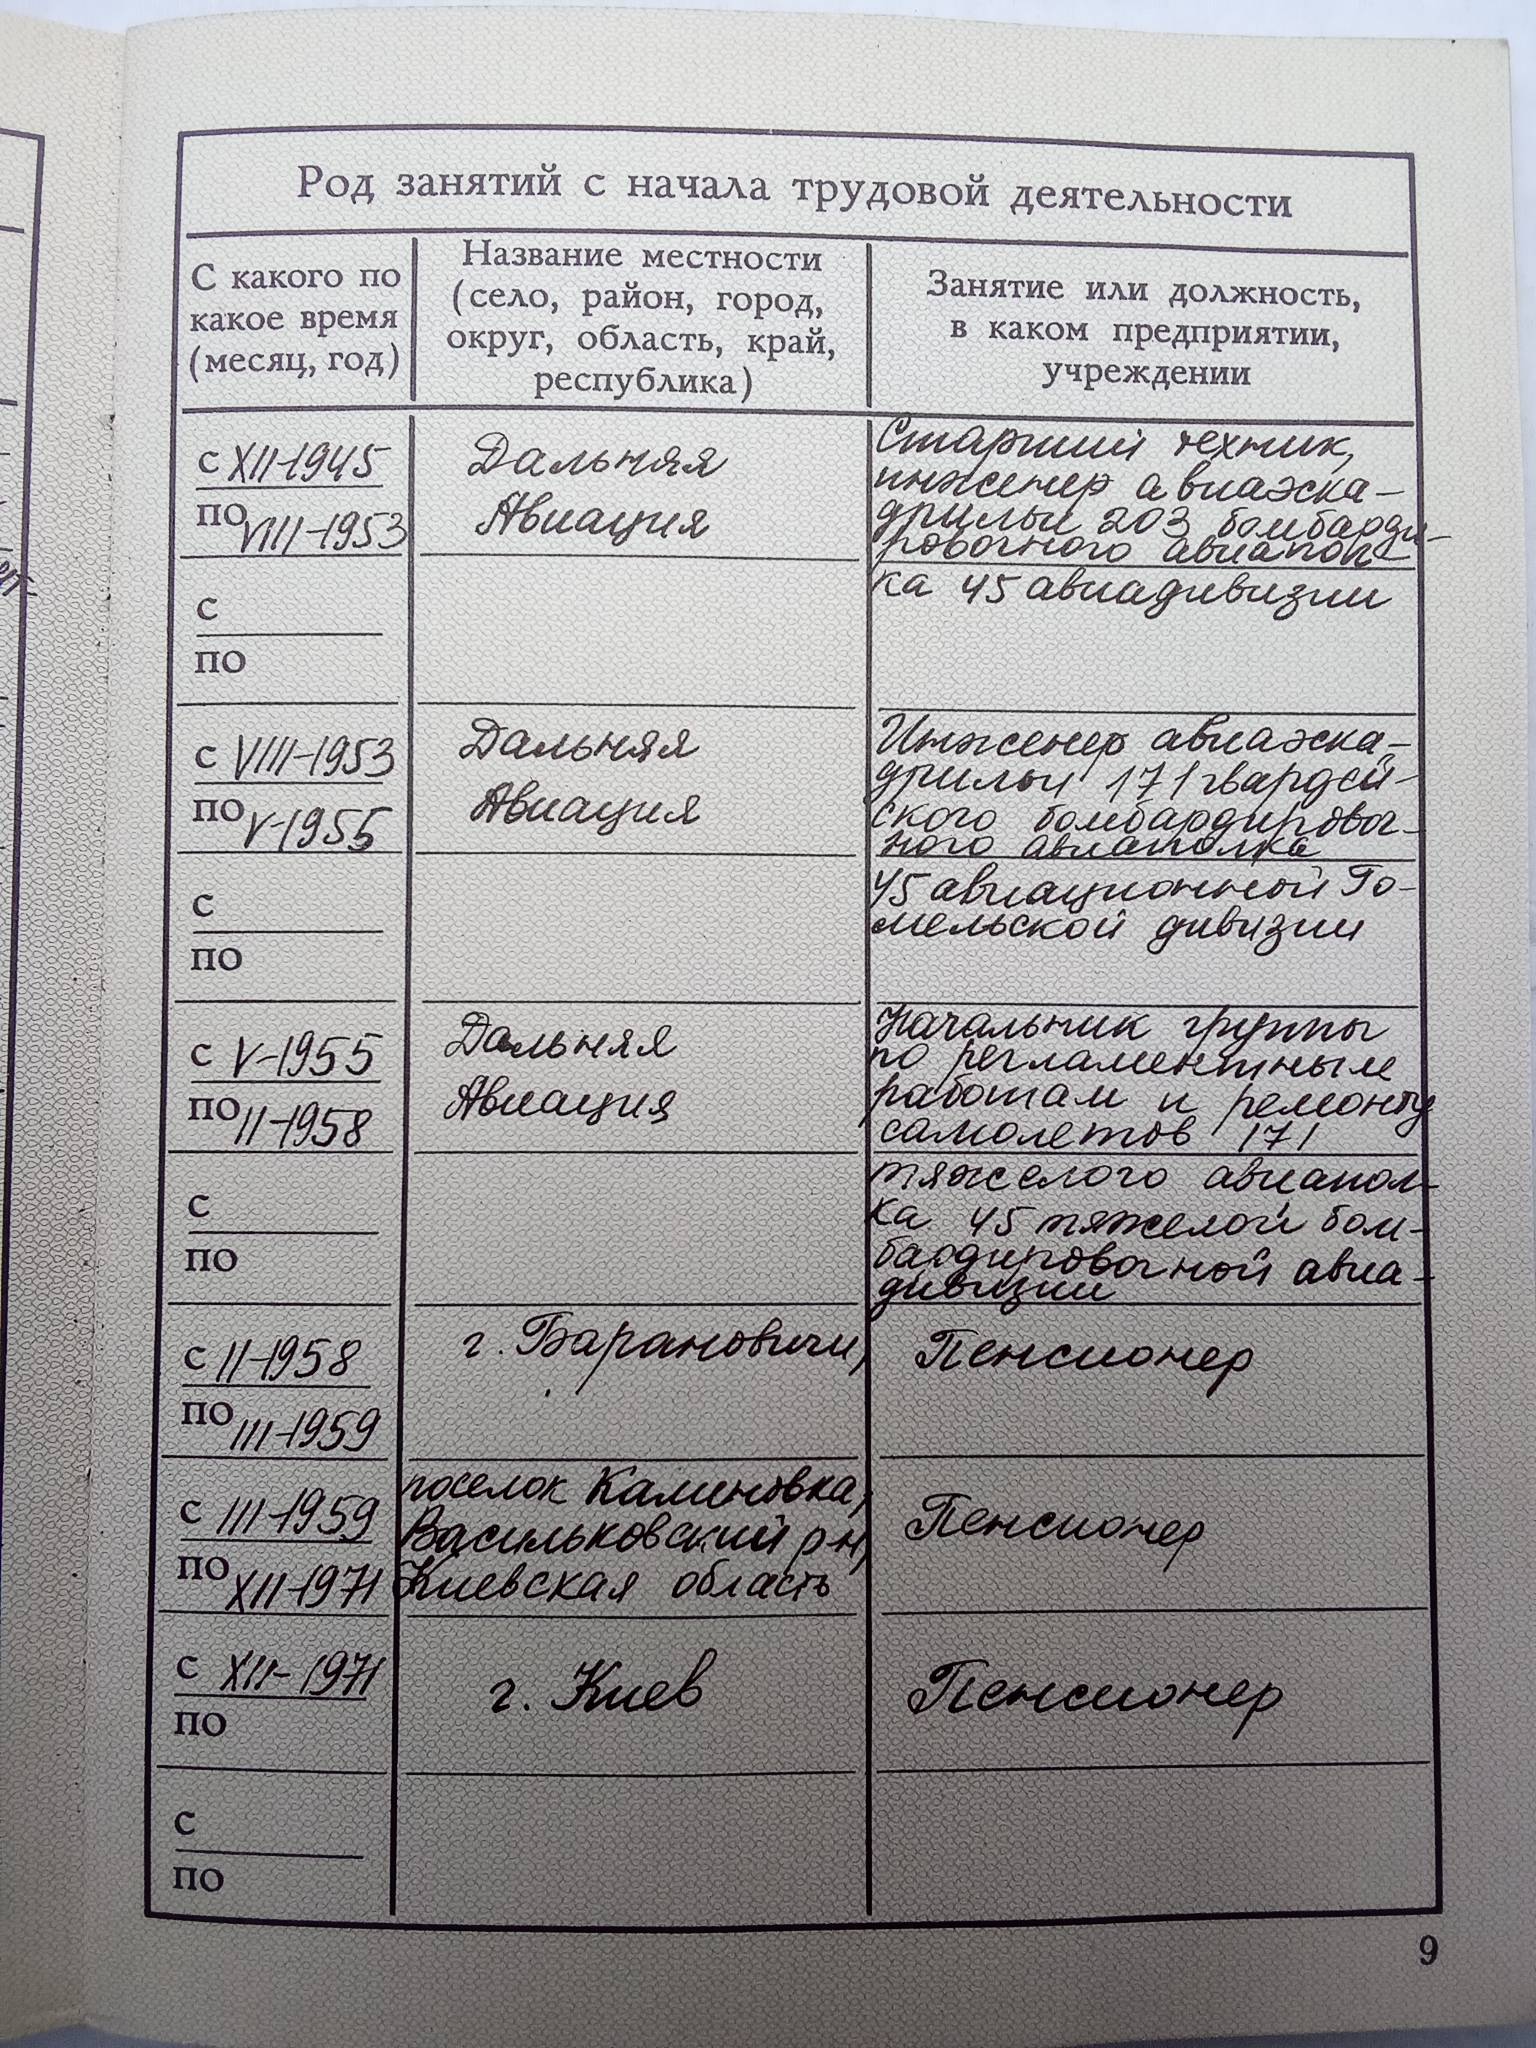 Род занятий с начала трудовой деятельности
С какого по
какое время
(месяц, год)
Название местности
(село, район, город,
округ, область, край,
республика)
Занятие или должность,
в каком предприятии,
учреждении
с XII-1945
по VIII-1953
Дальняя
Авиация
Старший техник,
инженер авиаэска-
дрильи 203 бомбарди-
ровочного авиапол-
ка 45 авиадивизии
с
по
с VIII-1953
по V-1955
Дальняя
Авиация
Инженер авиаэска-
дрильи 171 гвардей-
ского бомбардировоч-
ного авиаполка
45 авиационной Го-
мельской дивизии
с
по
с V-1955
по II-1958
Дальняя
Авиация
Начальник группы
по регламентным
работам и ремонту
самолетов 171
тяжелого авиапол-
ка 45 тяжелой бом-
бардировочной авиа-
дивизии
с
по
с II-1958
по III-1959
г. Барановичи,
Пенсионер
с III-1959
по XII-1971
поселок Калиновка,
Васильковский р-н,
Киевская область
Пенсионер
с XII-1971
по
г. Киев
Пенсионер
с
по
9